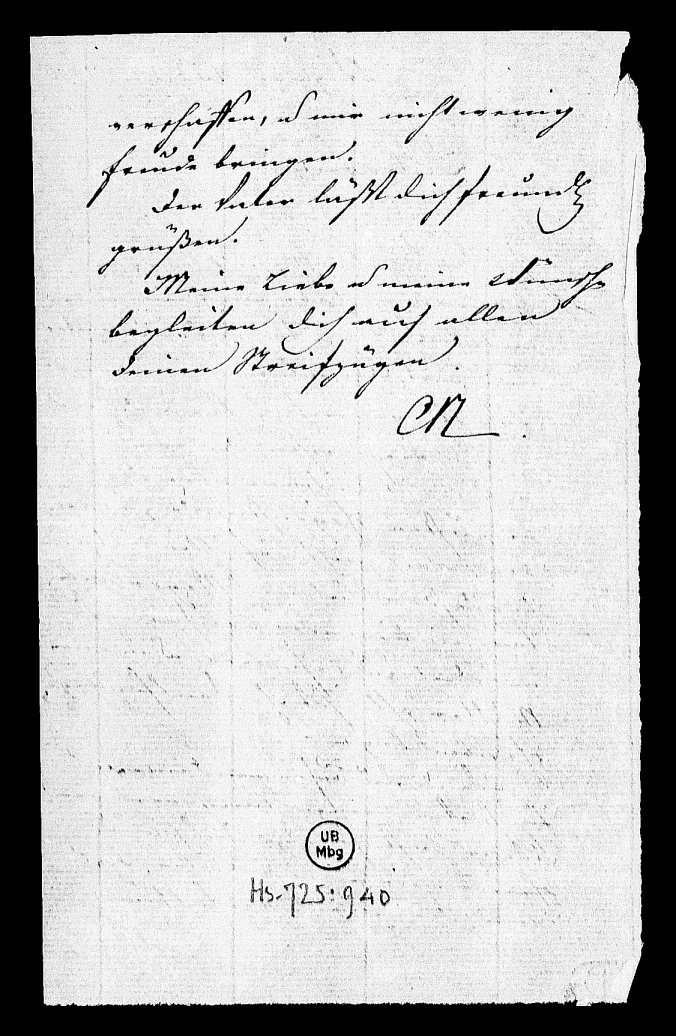 verschaffen, u mir nicht wenig
Freude bringen.
Der Vater läßt dich freundl
grüßen.
Meine Liebe u meine Wünsche
begleiten dich auf allen
deinen Streifzügen.
CR
UB
Mbg
Hs. 725:940